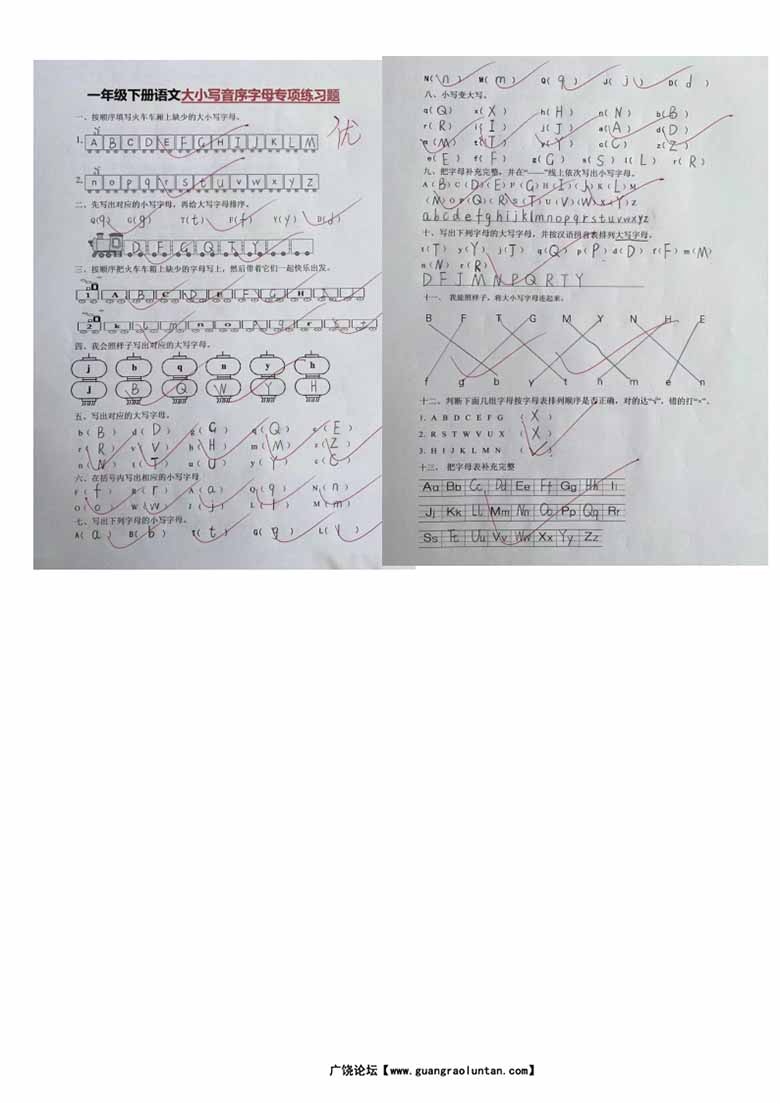 一年级下册语文大小写音序字母专项练习题
一、按顺序填写火车车厢上缺少的大小写字母。
1. A B C D E F G H I J K L M
优
2. n o p q r s t u v w x y z
二、先写出对应的小写字母，再给大写字母排序。
Q(q) G(g) T(t) F(f) Y(y) D(d)
D F G Q T Y
三、按顺序把火车车箱上缺少的字母写上，然后带着它们一起快乐出发。
1 A B C D E F G H I J
2 k l m n o p q r s t
四、我会照样子写出对应的大写字母。
j b q n y h
J B Q N Y H
五、写出对应的大写字母。
b(B) d(D) g(G) q(Q) e(E)
r(R) v(V) h(H) m(M) z(Z)
n(N) t(T) u(U) y(Y) c(C)
六、在括号内写出相应的小写字母
F(f) R(r) A(a) Q(q) N(n)
O(o) W(w) J(j) L(l) M(m)
七、写出下列字母的小写字母。
A(a) B(b) T(t) G(g) L(l)
N(n) M(m) Q(q) J(j) D(d)
八、小写变大写。
q(Q) x(X) h(H) n(N) b(B)
r(R) i(I) j(J) a(A) d(D)
m(M) t(T) y(Y) c(C) z(Z)
e(E) f(F) g(G) s(S) l(L) r(R)
九、把字母补充完整，并在“——”线上依次写出小写字母。
A(B)C(D)(E)F(G)H(I)(J)K(L)M
(N)O P(Q)(R)S(T)U(V)(W)X(Y)Z
abcdefghijklmnopqrstuvwxyz
十、写出下列字母的大写字母，并按汉语拼音表排列大写字母。
t(T) y(Y) j(J) q(Q) p(P) d(D) f(F) m(M)
n(N) r(R)
D F J M N P Q R T Y
十一、 我能照样子，将大小写字母连起来。
B F T G M Y N H E
f g b y t h m e n
十二、判断下面几组字母按字母表排列顺序是否正确，对的达“√”，错的打“×”。
1. A B D C E F G (X)
2. R S T W V U X (X)
3. H I J K L M N (√)
十三、 把字母表补充完整
Aa Bb Cc Dd Ee Ff Gg Hh Ii
Jj Kk Ll Mm Nn Oo Pp Qq Rr
Ss Tt Uu Vv Ww Xx Yy Zz
广饶论坛【www.guangraoluntan.com】